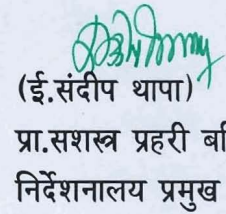 (ई.संदीप थापा)
प्रा.सशस्त्र प्रहरी
निर्देशनालय प्रमुख